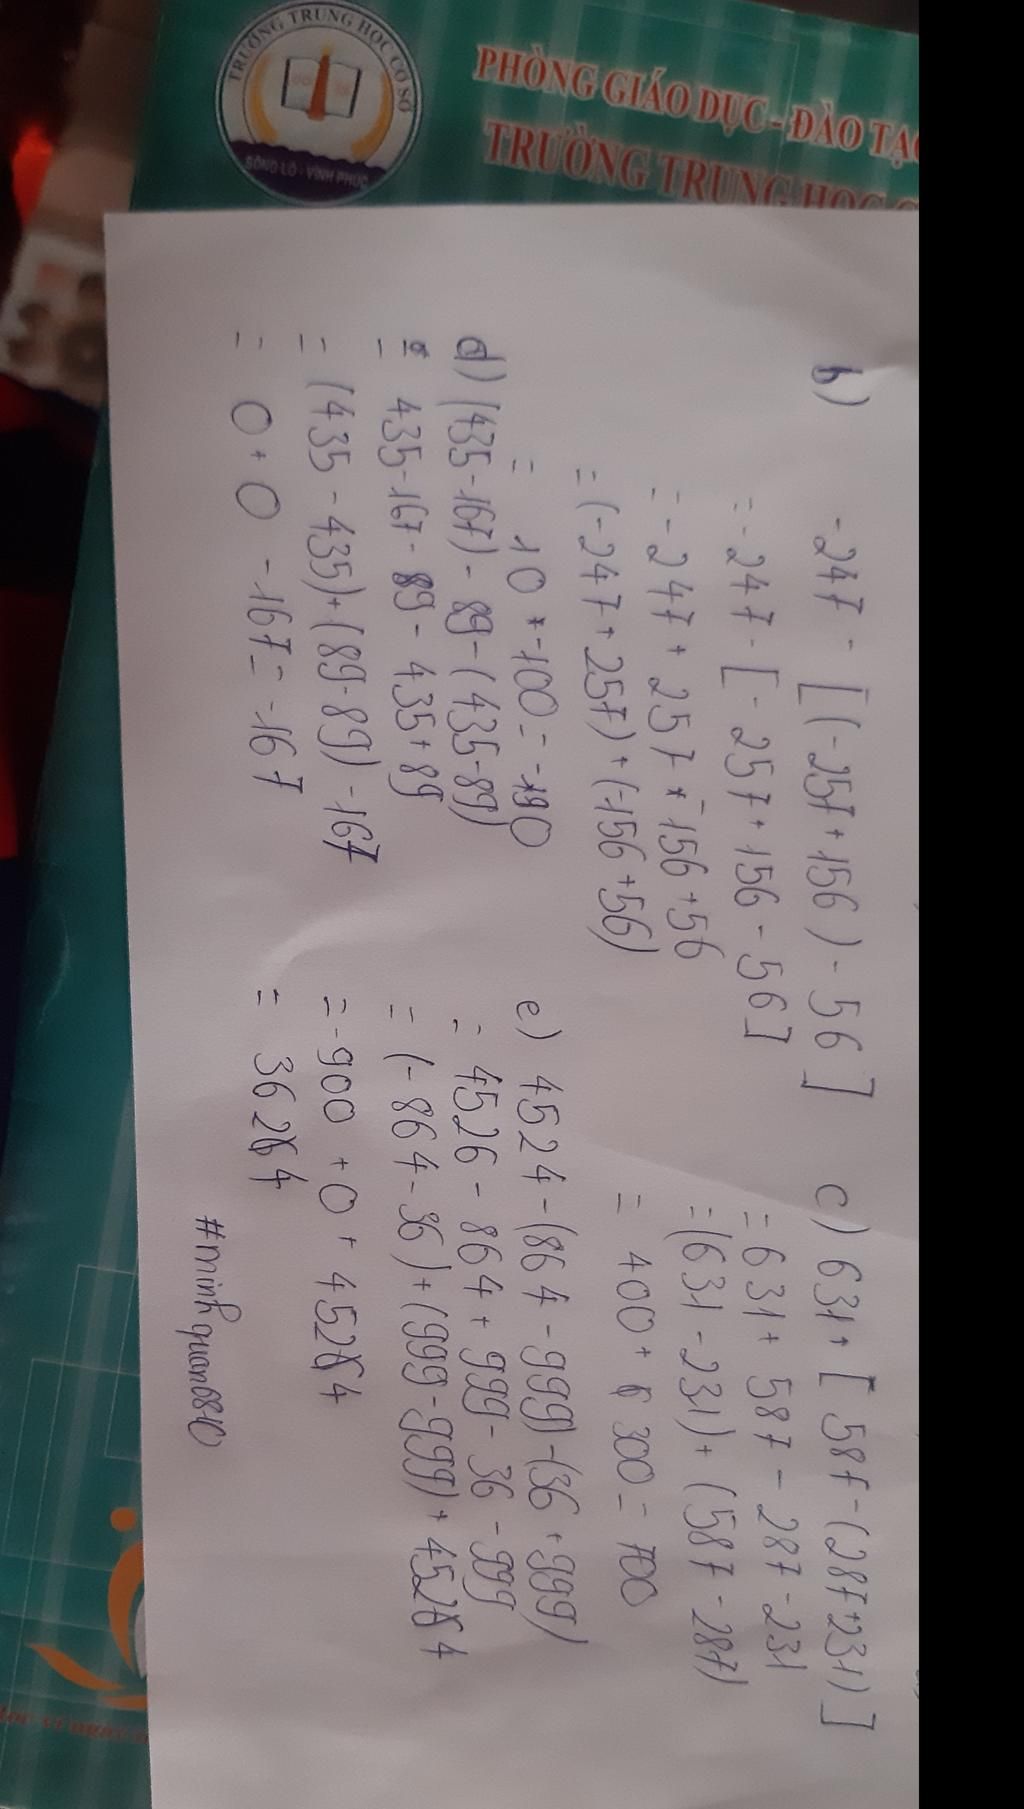 TRƯỜNG TRUNG HỌC CƠ SỞ
SÔNG LÔ - VĨNH PHÚC
PHÒNG GIÁO DỤC - ĐÀO TẠO
TRƯỜNG TRUNG HỌC
b) -247 - [(-257+156)-56]
= -247-[-257+156-56]
= -247+257+-156+56
= (-247+257)+(-156+56)
= 10+-100=-90
c) 631+[587-(287+231)]
= 631+587-287-231
= (631-231)+(587-287)
= 400+300=700
d) (435-167)-89-(435-89)
= 435-167-89-435+89
= (435-435)+(89-89)-167
= 0+0-167=-167
e) 4524-(864-999)-(36+999)
= 4526-864+999-36-999
= (-864-36)+(999-999)+4524
= -900+0+4524
= 3624
#minhquan0810